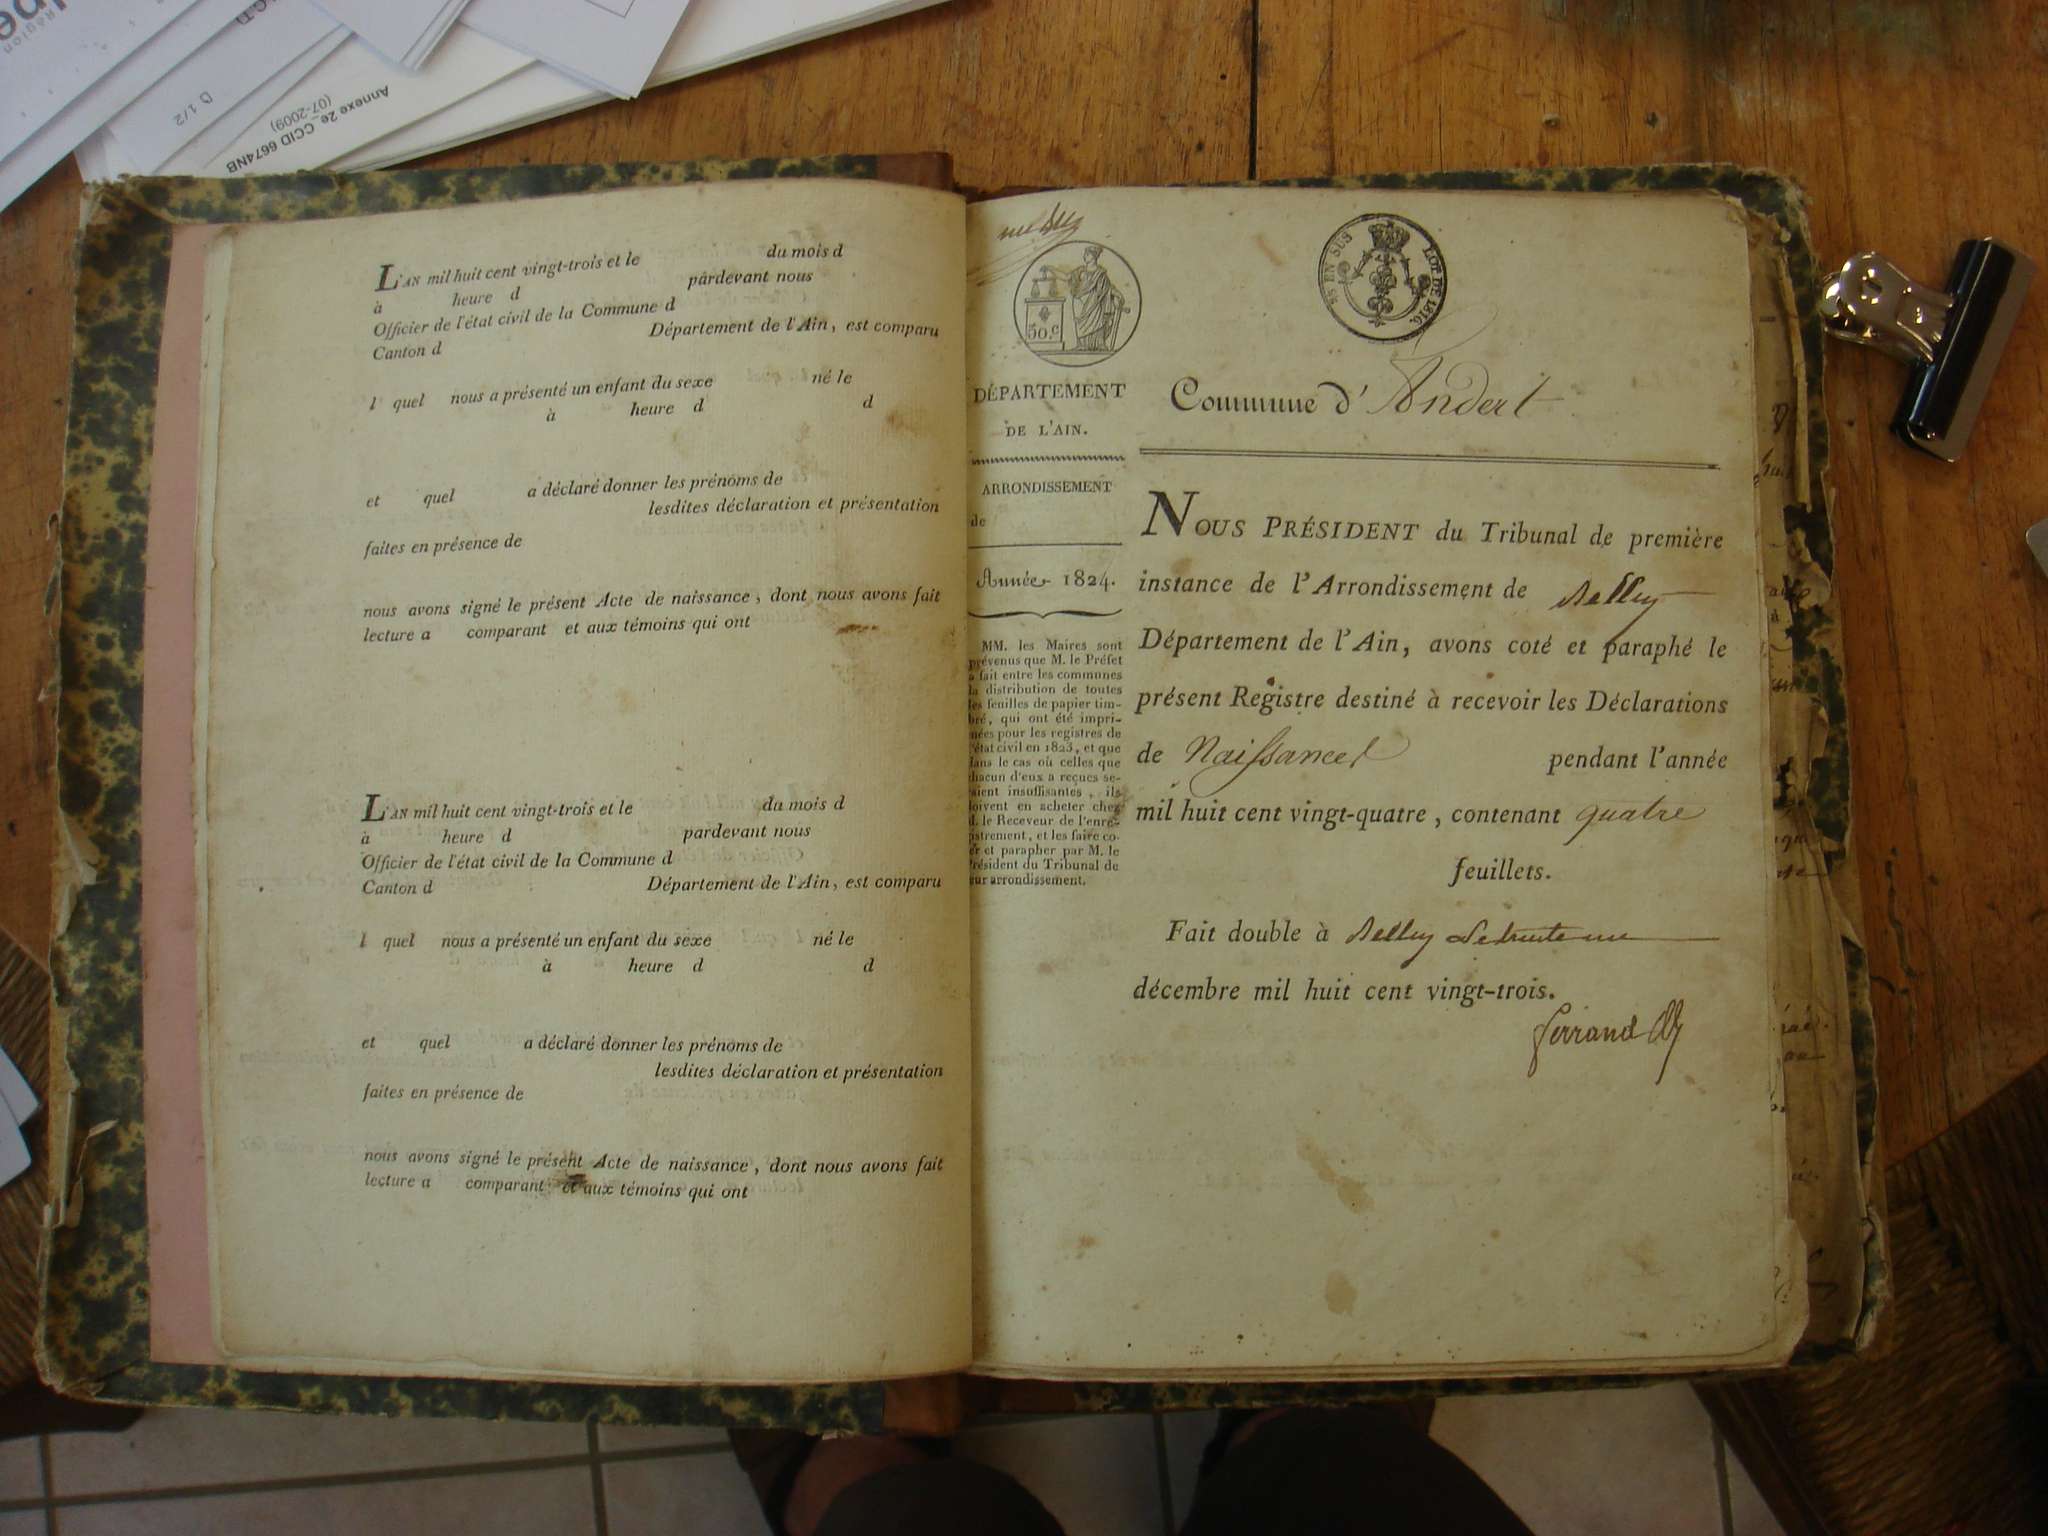 Région
D 1/2
Annexe 2e_CCID 6674NB
(07-2009)
L'AN mil huit cent vingt-trois et le du mois d
à heure d pardevant nous
Officier de l'état civil de la Commune d
Canton d Département de l'Ain, est comparu
l quel nous a présenté un enfant du sexe né le
à heure d d
et quel a déclaré donner les prénoms de
lesdites déclaration et présentation
faites en présence de
nous avons signé le présent Acte de naissance, dont nous avons fait
lecture a comparant et aux témoins qui ont
L'AN mil huit cent vingt-trois et le du mois d
à heure d pardevant nous
Officier de l'état civil de la Commune d
Canton d Département de l'Ain, est comparu
l quel nous a présenté un enfant du sexe né le
à heure d d
et quel a déclaré donner les prénoms de
lesdites déclaration et présentation
faites en présence de
nous avons signé le présent Acte de naissance, dont nous avons fait
lecture a comparant et aux témoins qui ont
50.c
EN SUS LOI DE 1816.
DÉPARTEMENT
DE L'AIN.
ARRONDISSEMENT
de
Année 1824.
MM. les Maires sont
prévenus que M. le Préfet
a fait entre les communes
la distribution de toutes
les feuilles de papier tim-
bré, qui ont été impri-
mées pour les registres de
l'état civil en 1823, et que
dans le cas où celles que
chacun d'eux a reçues se-
raient insuffisantes, ils
doivent en acheter chez
M. le Receveur de l'enre-
gistrement, et les faire co-
ter et parapher par M. le
Président du Tribunal de
leur arrondissement.
Commune d'Andert
NOUS PRÉSIDENT du Tribunal de première
instance de l'Arrondissement de Belley
Département de l'Ain, avons coté et paraphé le
présent Registre destiné à recevoir les Déclarations
de Naissances pendant l'année
mil huit cent vingt-quatre, contenant quatre
feuillets.
Fait double à Belley Le trente un
décembre mil huit cent vingt-trois.
Ferrand